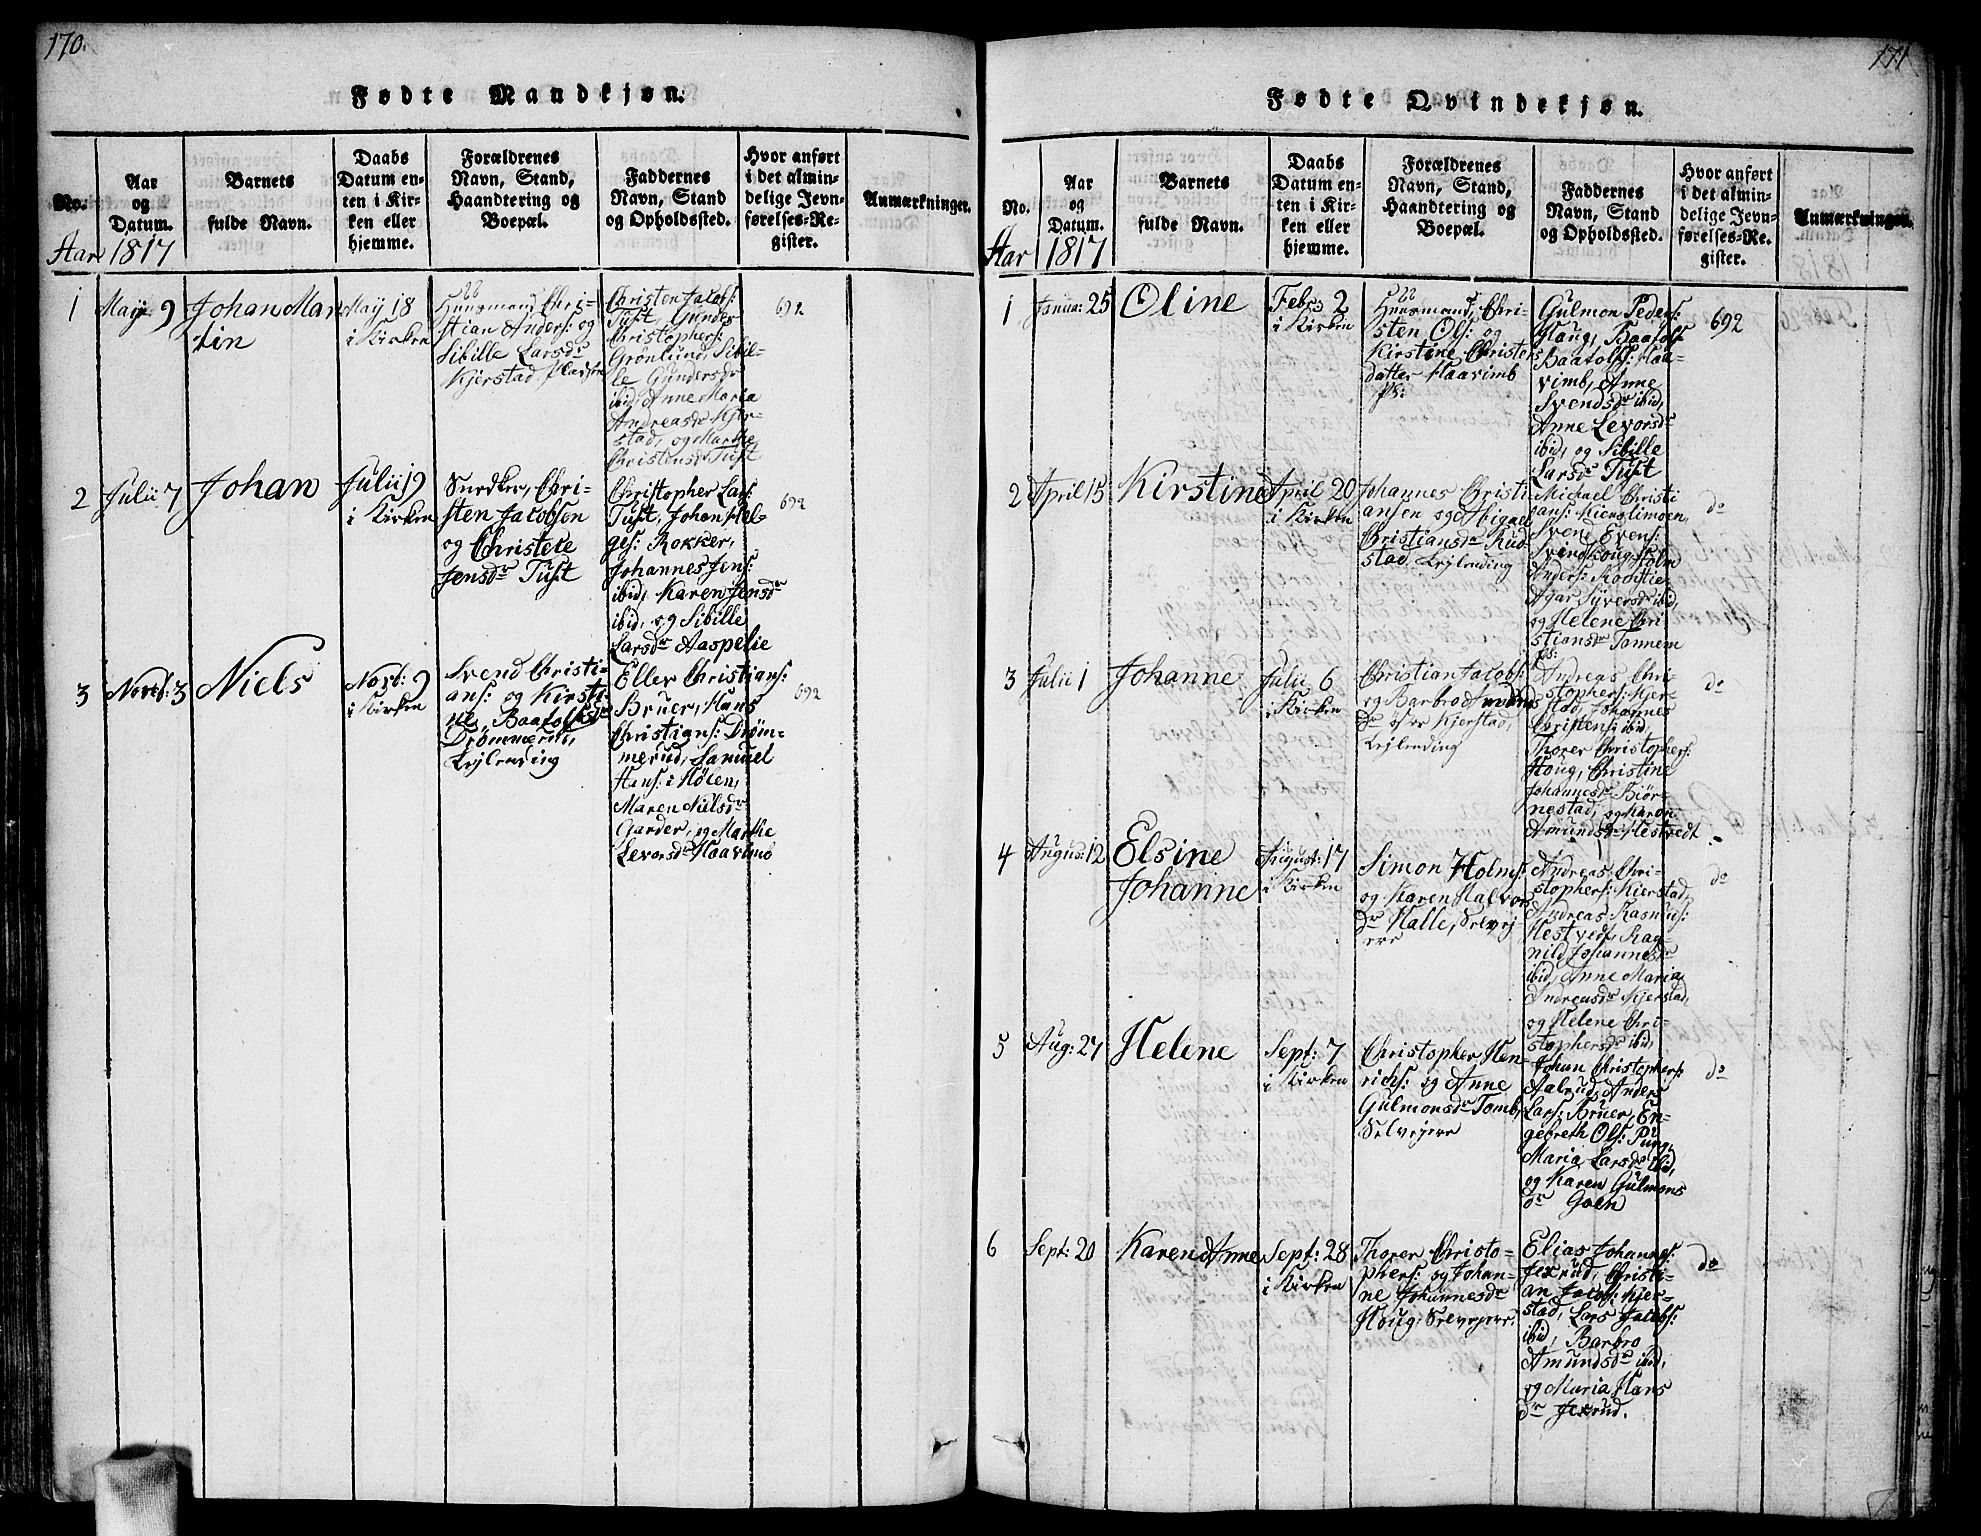 170.
Fødte Mandkjøn.
No.
Aar
og
Datum.
Barnets
fulde Navn.
Daabs
Datum en-
ten i Kir-
ken eller
hjemme.
Forældrenes
Navn, Stand,
Haandtering og
Boepæl.
Faddernes
Navn, Stand
og Opholdssted.
Hvor anført
i det almin-
delige Jevn-
førelses-Re-
gister.
Anmærkninger.
Aar 1817
1
May 9
Johan Mar
tin
May 18
i Kirken
Huusmand, Chri-
stian Anders: og
Sibille Larsdr
Kjerstad,
Christen Jacobs:
Tust, Gunder
Christophers:
Grönlund, Sibil-
le Gundersdr
ibid, Anne Maria
Andreasdr Kjer-
stad, og Marthe
Christensdr Tust
692
2
Julii 7
Johan
Julii 19
i Kirken
Snedker, Chri-
sten Jacobsen
og Christete
Jensdr Tust
Christopher Lars:
Tust, Johan Hel-
ges: Rokker,
Johannes Jens:
ibid, Karen Jensdr
ibid, og Sibille
Larsdr Aaspelie
692
3
Novb: 3
Niels
Novb: 9
i Kirken
Svend Christi-
ans: og Kirsti-
ne Baatolfsdr
Drömmerud,
Lejlending
Eller Christians:
Bruer, Hans
Christians: Dröm-
merud, Samuel
Hans: i Hölen,
Maren Nielsdr
Garder, og Marthe
Levorsdr Haavimb
692
171
Fødte Qvindekjøn.
No.
Aar
og
Datum.
Barnets
fulde Navn.
Daabs
Datum en-
ten i Kir-
ken eller
hjemme.
Forældrenes
Navn, Stand,
Haandtering og
Boepæl.
Faddernes
Navn, Stand
og Opholdssted.
Hvor anført
i det almin-
delige Jevn-
førelses-Re-
gister.
Anmærkninger.
Aar 1817
1
Janua: 25
Oline
Feb: 2
i Kirken
Huusmand, Chri-
sten Ols: og
Kirstine Christens
datter Haavimb
Gulmon Peders:
Haug, Baatolf
Baatolfs: Haa-
vimb, Anne
Svendsdr ibid,
Anne Levorsdr
ibid, og Sibille
Larsdr Tust
692
2
April 15
Kirstine
April 20
i Kirken
Johannes Christi-
ansen og Abigael
Christiansdr Rud-
stad, Lejlending
Michael Christi
ans: Kierslimoen,
Svend Evens:
Svindhoug, Holm
Anders:
Agar Syversdr ibid,
og Helene Chri-
stiansdr Tannem
do
3
Julii 1
Johanne
Julii 6
i Kirken
Christian Jacobs:
og Barbro Amunds
dr Kjerstad,
Lejlending
Andreas Chri-
stophers: Kjer-
stad, Johannes
Christens: ibid,
Thorer Christophers:
Houg, Christine
Johannesdr Biör-
nestad, og Karen
Amundsdr Hestvedt
do
4
Augus: 12
Elsine
Johanne
August: 17
i Kirken
Simon Holms:
og Karen Halvors
dr Halle, Selvej-
ere
Andreas Chri-
stophers: Kierstad,
Andreas Rasmus:
Hestvedt, Rag-
nild Johannesdr
ibid, Anne Maria
Andreasdr Kjerstad,
og Helene Chri-
stophersdr ibid,
do
5
Aug: 27
Helene
Sept: 7
i Kirken
Christopher Hen-
richs: og Anne
Gulmonsdr Tomb,
Selvejere
Johan Christophers:
Aalrud, Anders
Lars: Bruer, En-
gebreth Ols: Pung,
Maria Larsdr ibid,
og Karen Gulmons
dr Goen
do
6
Sept: 20
Karen Anne
Sept: 28
i Kirken
Thorer Christo-
phers: og Johan-
ne Johannesdr
Houg, Selvejere,
Elias Johannes:
Jexrud, Christi-
an Jacobs: Kjer-
stad, Lars Jacobs:
ibid, Barbro
Amundsdr ibid,
og Maria Hans
dr Jexrud.
do